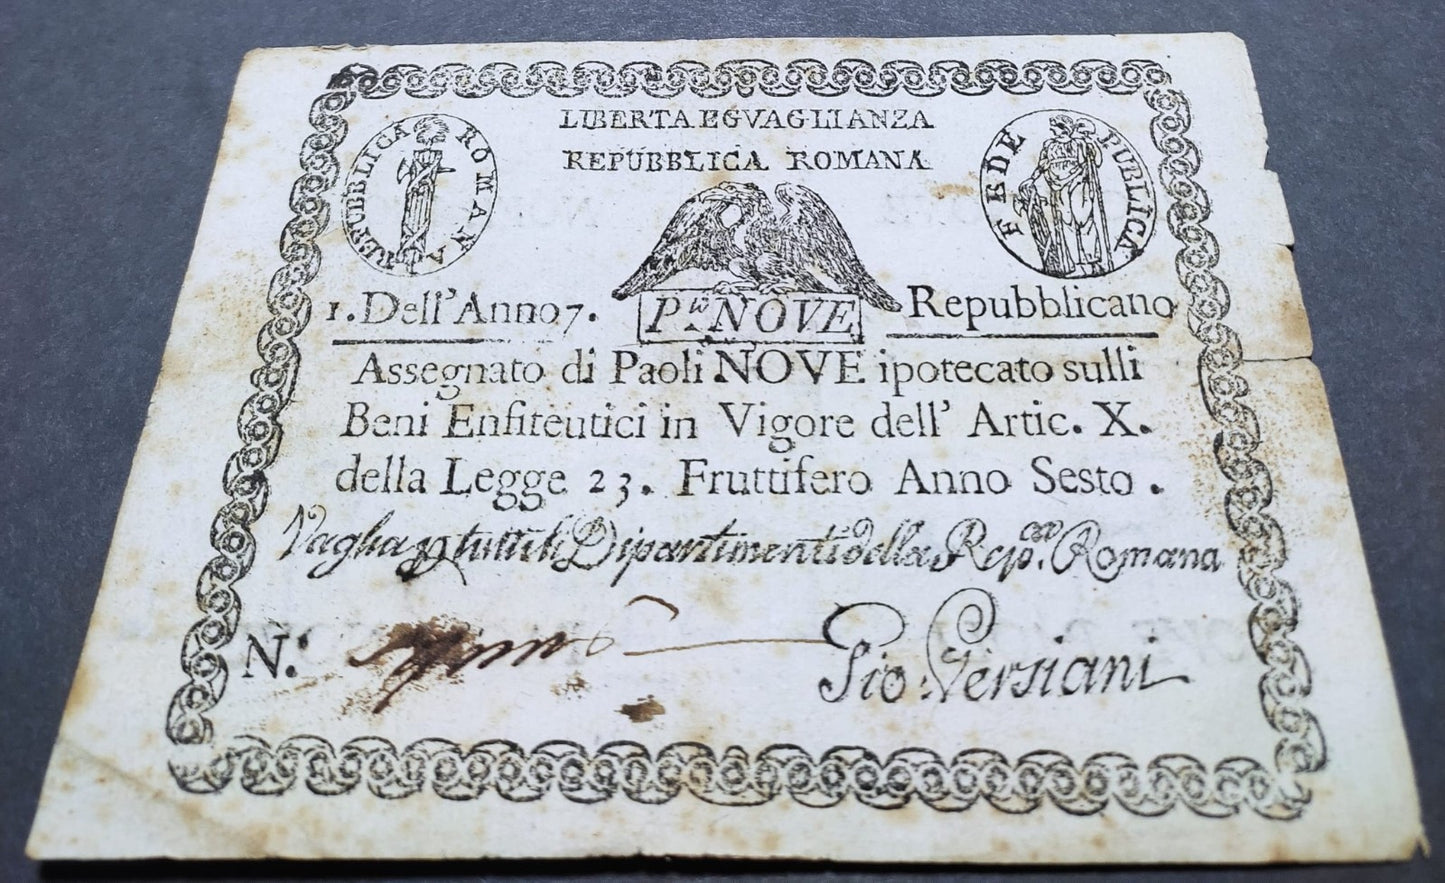 LIBERTA EGVAGLIANZA
REPUBBLICA ROMANA
REPUBBLICA ROMANA
FEDE PUBLICA
1. Dell'Anno 7. P.W NOVE Repubblicano
Assegnato di Paoli NOVE ipotecato sulli
Beni Enfiteutici in Vigore dell' Artic. X.
della Legge 23. Fruttifero Anno Sesto.
Vaglia p tutti li Dipartimenti della Rep.ca Romana
N.
Pio Versiani